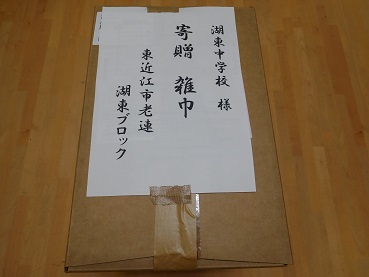 湖東中学校　様
寄贈　雑巾
東近江市老連
湖東ブロック